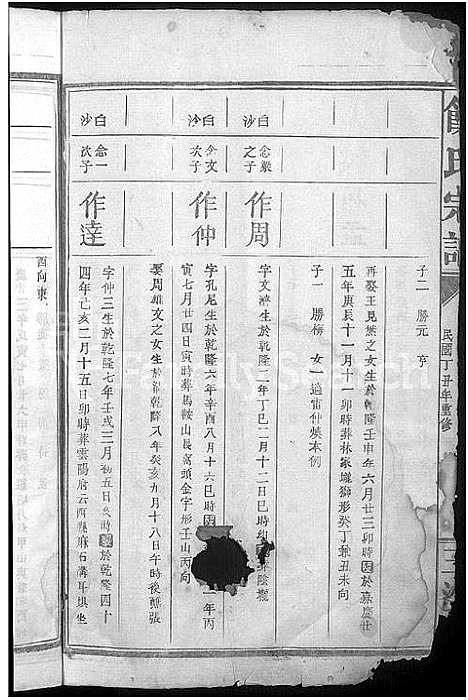 氏宗譜
民國丁丑年重修
子二 勝元 亨
再娶王見無之女生於乾隆壬申年六月廿三卯時㱕於嘉慶廿
五年庚辰十一月十一卯時葬林家壠獅形癸丁兼丑未向
白沙
念巖之子
作周
字文濤生於乾隆二年丁巳二月十二日巳時
子一 勝梅 女一適雷仲煥本例
白沙
念文次子
作仲
字孔尼生於乾隆六年辛酉八月十六巳時 一年丙
寅七月廿四日寅時葬馬鞍山長窩頭金字形壬山丙向
娶周雄文之女生於乾隆八年癸亥九月十八日午時後醮張
白沙
念一次子
作達
字仲三生於乾隆七年壬戌三月初五日亥時㱕於乾隆四十
四年己亥二月十五日卯時葬雲陽府云西縣麻石溝耳垻坐
酉向東